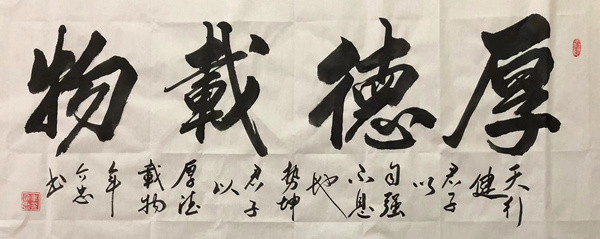 厚德載物
天行
健
君子
以
自强
不息
地
势坤
君子
以
厚德
載物
年
忠
书